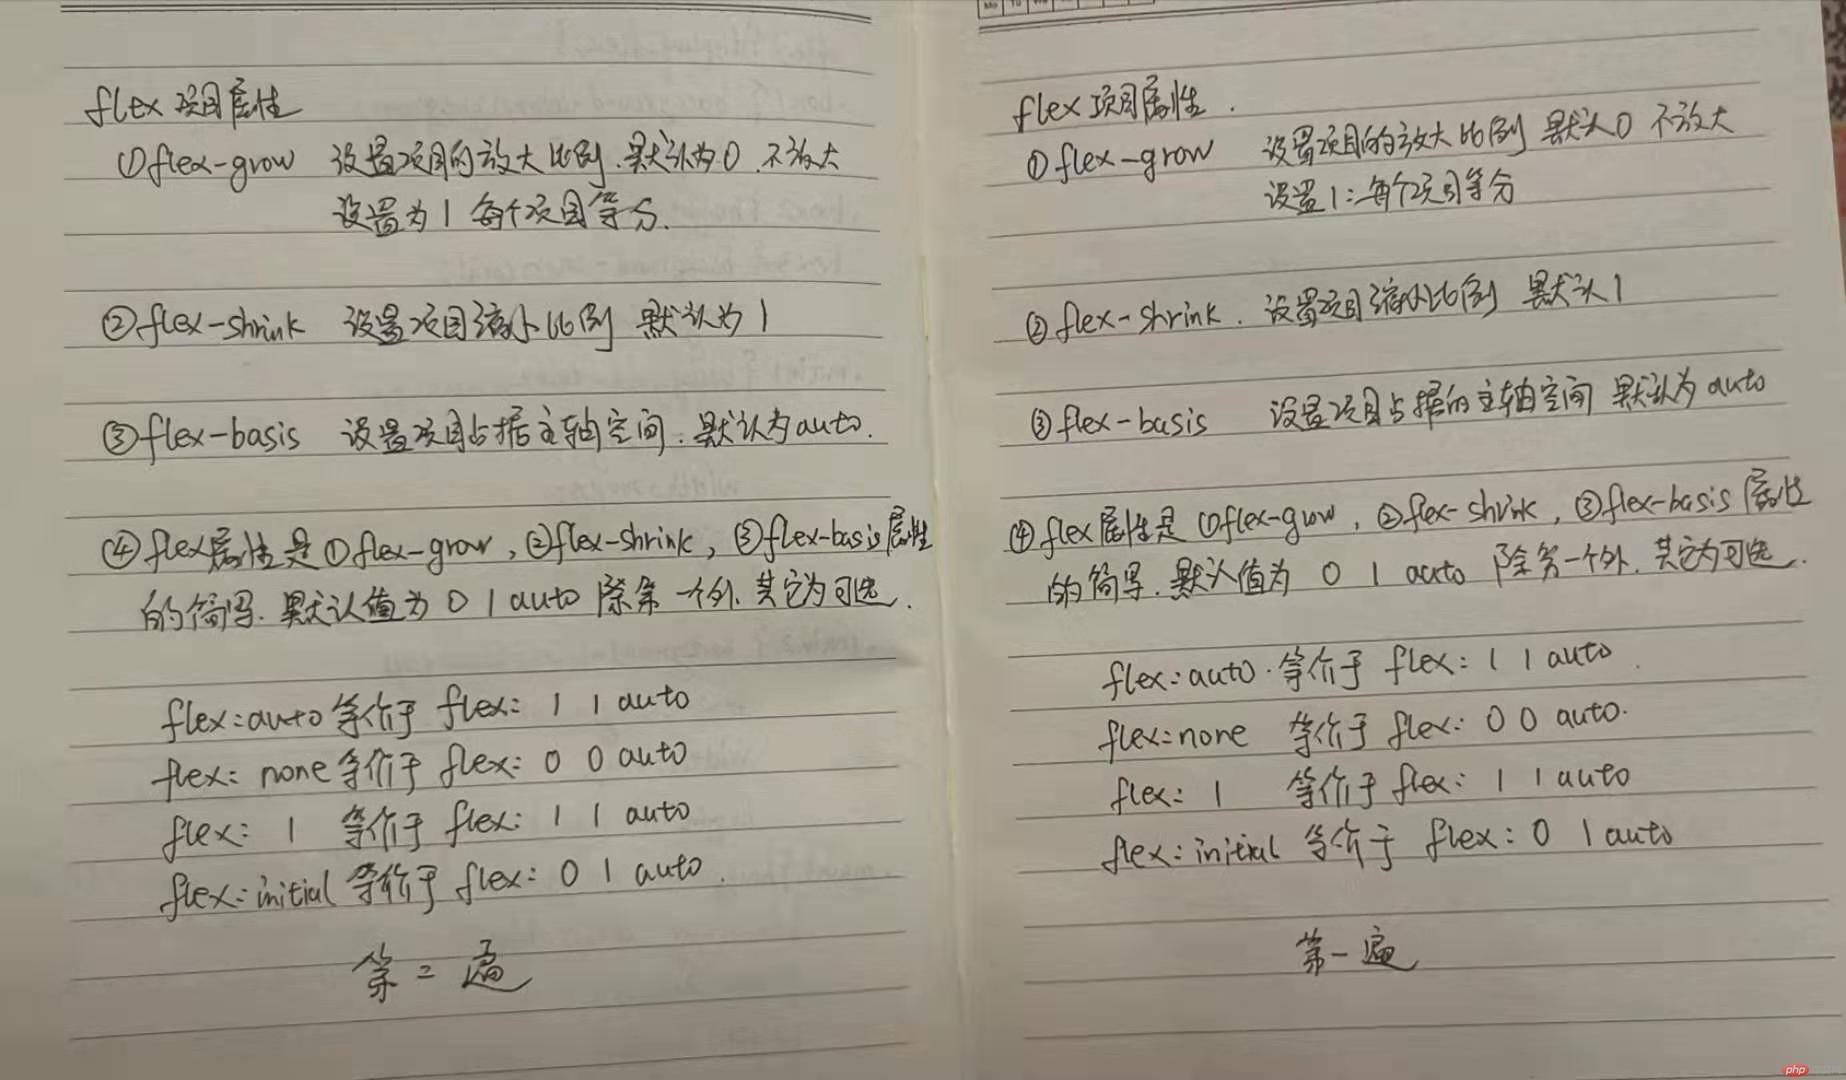 flex 项目属性
①flex-grow 设置项目的放大比例.默认为0.不放大
设置为1 每个项目等分.
②flex-shrink 设置项目缩小比例 默认为1
③flex-basis 设置项目占据主轴空间.默认为auto.
④flex属性是①flex-grow,②flex-shrink,③flex-basis属性
的简写.默认值为 0 1 auto 除第一个外、其它为可选.
flex:auto等价于 flex: 1 1 auto
flex: none等价于 flex: 0 0 auto
flex: 1 等价于 flex: 1 1 auto
flex:initial 等价于 flex: 0 1 auto.
第二遍
Mo Tu We
flex 项目属性.
①flex-grow 设置项目的放大比例 默认0 不放大
设置1:每个项目等分
②flex-shrink. 设置项目缩小比例 默认1
③flex-basis 设置项目占据的主轴空间 默认为auto
④flex属性是①flex-grow,②flex-shrink,③flex-basis属性
的简写.默认值为 0 1 auto 除第一个外.其它为可选.
flex:auto.等价于 flex: 1 1 auto.
flex:none 等价于 flex: 0 0 auto.
flex: 1 等价于 flex: 1 1 auto
flex:initial 等价于 flex: 0 1 auto
第一遍
php